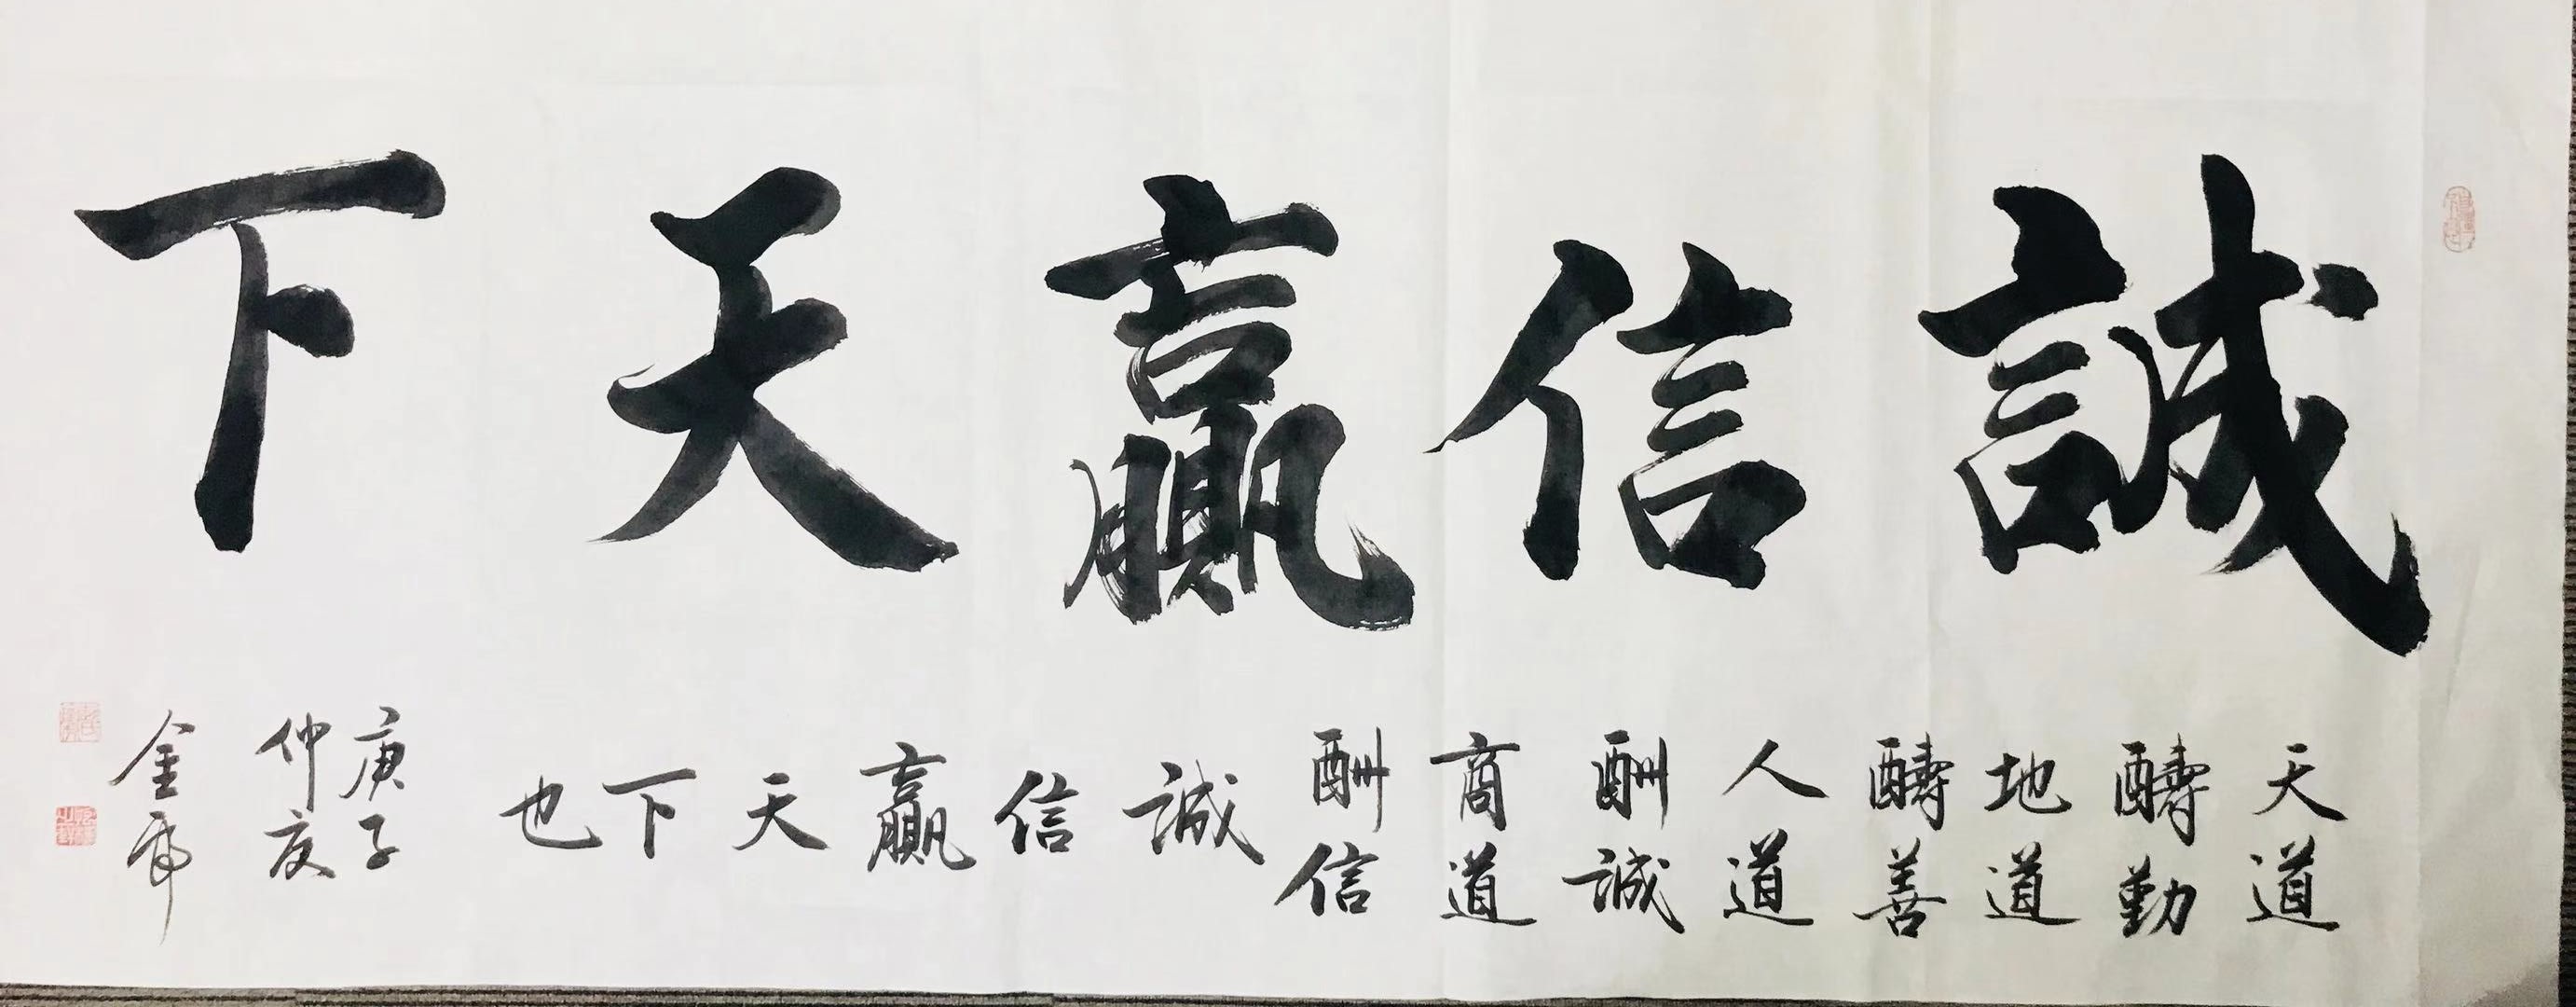 誠信贏天下
天道
醻勤
地道
醻善
人道
酬誠
商道
酬信
誠信贏天下也
庚子
仲夏
金